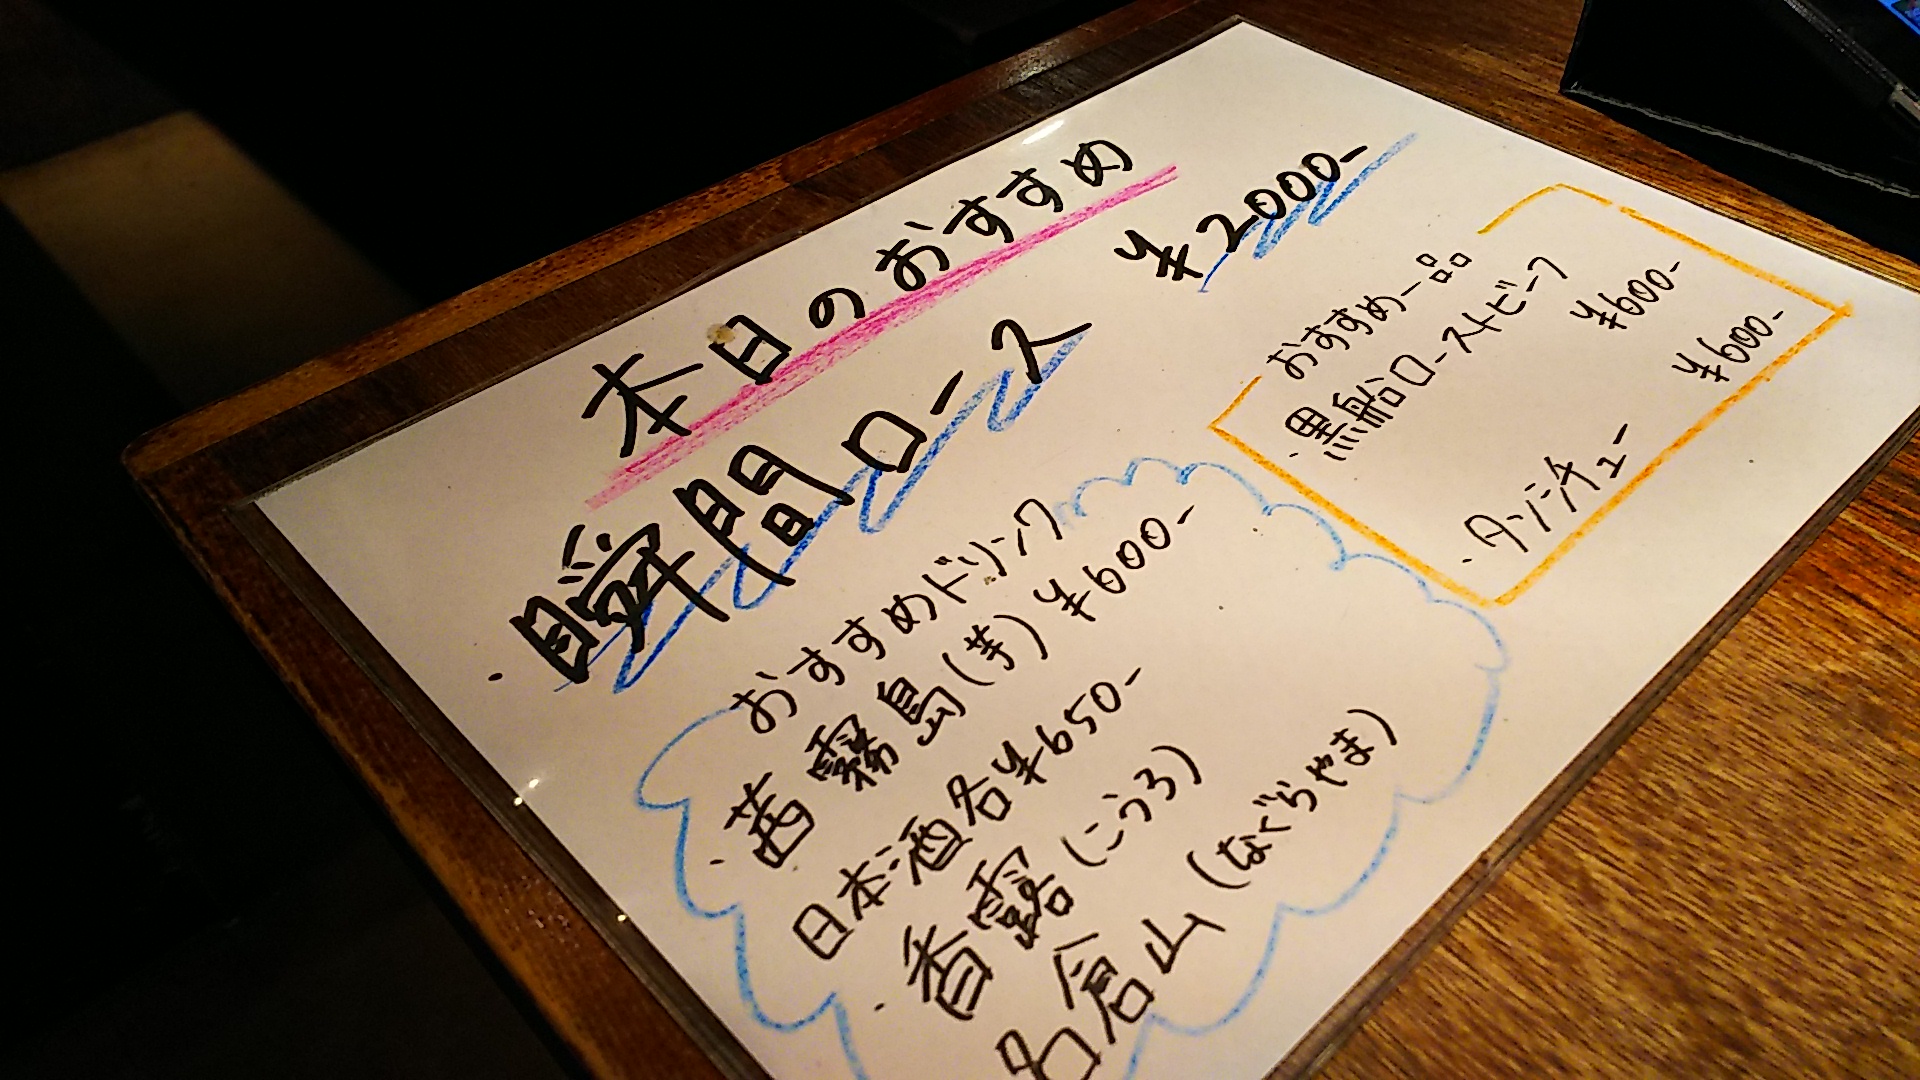 本日のおすすめ
・瞬間ロース ¥2000-
おすすめ一品
・黒船ローストビーフ ¥600-
・タンシチュー ¥600-
おすすめドリンク
・茜霧島(芋) ¥600-
日本酒各¥650-
・香露(こうろ)
名倉山(なぐらやま)